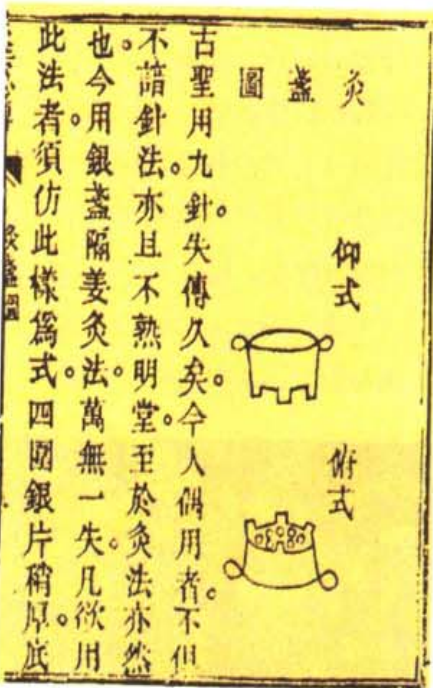 灸盞圖
仰式
俯式
古聖用九針。失傳久矣。今人偶用者。不但
不諳針法。亦且不熟明堂。至於灸法亦然
也。今用銀盞隔姜灸法。萬無一失。凡欲用
此法者。須仿此樣爲式。四圍銀片稍厚。底
灸盞圖